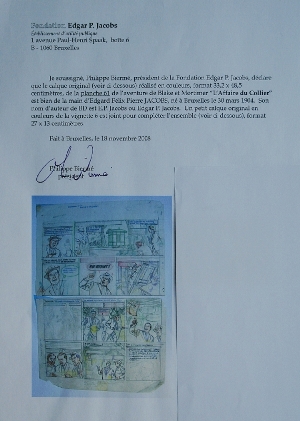 Fondation Edgar P. Jacobs
Établissement d'utilité publique
1 avenue Paul-Henri Spaak, boîte 6
B - 1060 Bruxelles
Je soussigné, Philippe Biermé, président de la Fondation Edgar P. Jacobs, déclare
que le calque original (voir di dessous) réalisé en couleurs, format 33,2 x 48,5
centimètres, de la planche 61 de l'aventure de Blake et Mortimer "L'Affaire du Collier"
est bien de la main d'Edgard Félix Pierre JACOBS, né à Bruxelles le 30 mars 1904. Son
nom d'auteur de BD est E.P. Jacobs ou Edgar P. Jacobs. Un petit calque original en
couleurs de la vignette 6 est joint pour compléter l'ensemble (voir di dessous), format
27 x 13 centimètres.
Fait à Bruxelles, le 18 novembre 2008
Philippe Biermé